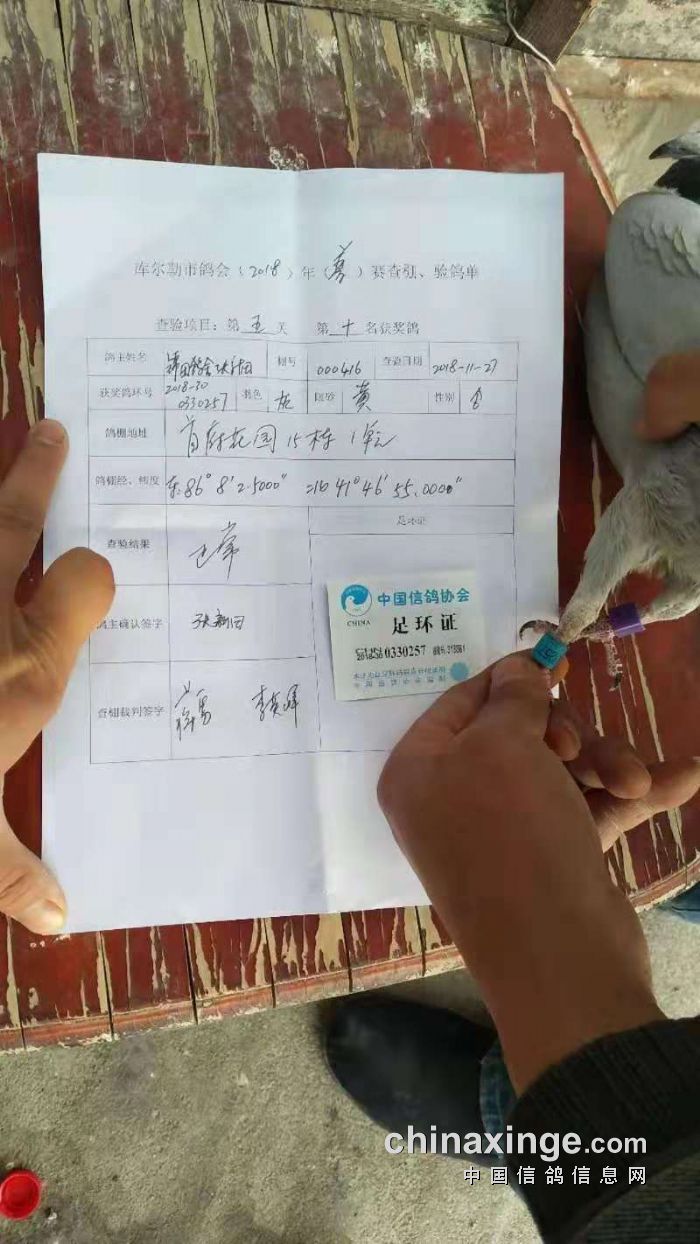 库尔勒市鸽会（2018）年（ ）赛查棚、验鸽单
查验项目：第 五 关 第 十 名获奖鸽
鸽主姓名 棚号 000416 查验日期 2018-11-27
获奖鸽环号 2018-30 0330257 羽色 灰 眼砂 黄 性别
鸽棚地址 首府花园15栋1单元
鸽棚经、纬度 东:86° 8' 2.5000" 北 41° 46' 55.0000"
查验结果 正常
足环证
鸽主确认签字 张新田
查棚裁判签字
中国信鸽协会
CHINA
足环证
0330257
chinaxinge.com
中国信鸽信息网